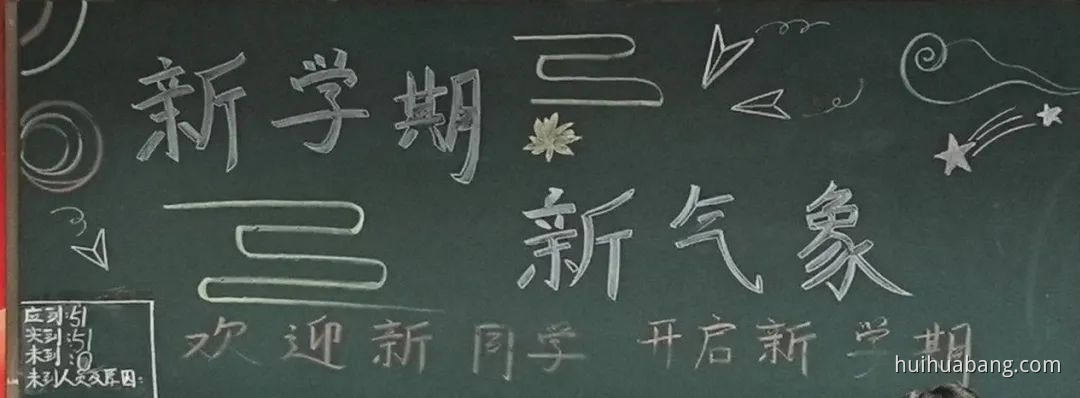 新学期
新气象
欢迎新同学 开启新学期
应到:51
实到:51
未到:0
未到人员及原因:
huihuabang.com